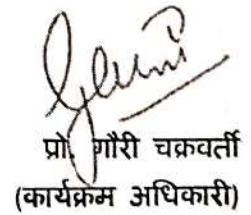 प्रो. गौरी चक्रवर्ती
(कार्यक्रम अधिकारी)